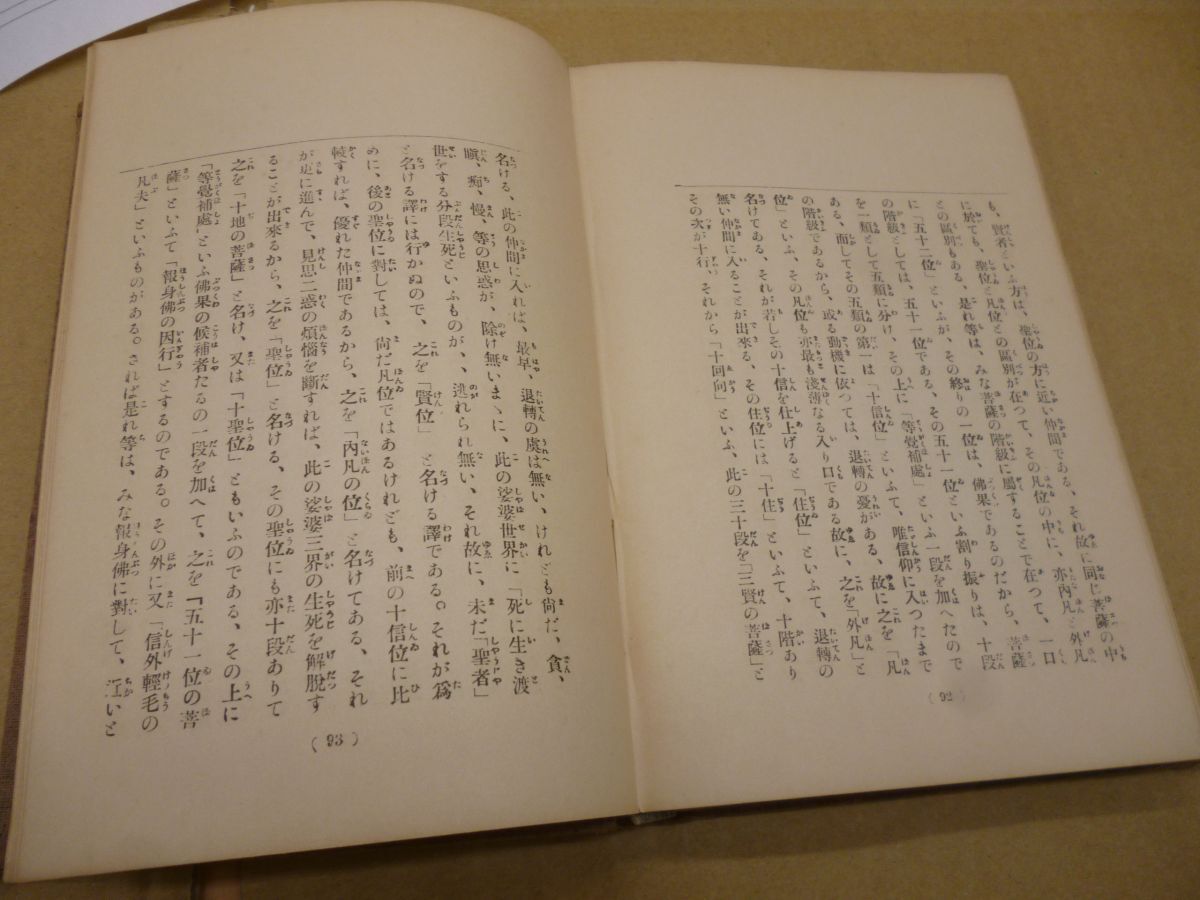 も、賢者といふ方は、聖位の方に近い仲間である、それ故に同じ菩薩の中
に於ても、聖位と凡位との區別が在つて、その凡位の中に、亦內凡と外凡
との區別もある、是れ等は、みな菩薩の階級に屬することで在つて、一口
に「五十二位」といふが、その終りの一位は、佛果であるのだから、菩薩
の階級としては、五十一位である、その五十一位といふ割り振りは、十段
を一類として五類に分け、その上に「等覺補處」といふ一段を加へたので
ある、而してその五類の第一は「十信位」といふて、唯信仰に入つたまで
の階級であるから、或る動機に依つては、退轉の憂がある、故に之を「凡
位」といふ、その凡位も亦最も淺薄なる入り口である故に、之を「外凡」と
名けてある、それが若しその十信を仕上げると「住位」といふて、退轉の
無い仲間に入ることが出來る、その住位には「十住」といふて、十階あり
その次が十行、それから「十回向」といふ、此の三十段を「三賢の菩薩」と
(92)
名ける、此の仲間に入れば、最早、退轉の虞は無い、けれども尙だ、貪、
瞋、痴、慢、等の思惑が、除け無いまゝに、この娑婆世界に「死に生き渡
世をする分段生死といふものが、遁れられ無い、それ故に、未だ「聖者」
と名ける譯には行かぬので、之を「賢位」と名ける譯である。それが爲
めに、後の聖位に對しては、尙だ凡位ではあるけれども、前の十信位に比
較すれば、優れた仲間であるから、之を「內凡の位」と名けてある、それ
が更に進んで、見思二惑の煩惱を斷すれば、此の娑婆三界の生死を解脫す
ることが出來るから、之を「聖位」と名ける、その聖位にも亦十段ありて
之を「十地の菩薩」と名け、又は「十聖位」ともいふのである、その上に
「等覺補處」といふ佛果の候補者たるの一段を加へて、之を『五十一位の菩
薩」といふて「報身佛の因行」とするのである。その外に又「信外輕毛の
凡夫」といふものがある。されば是れ等は、みな報身佛に對して、近いと
(93)